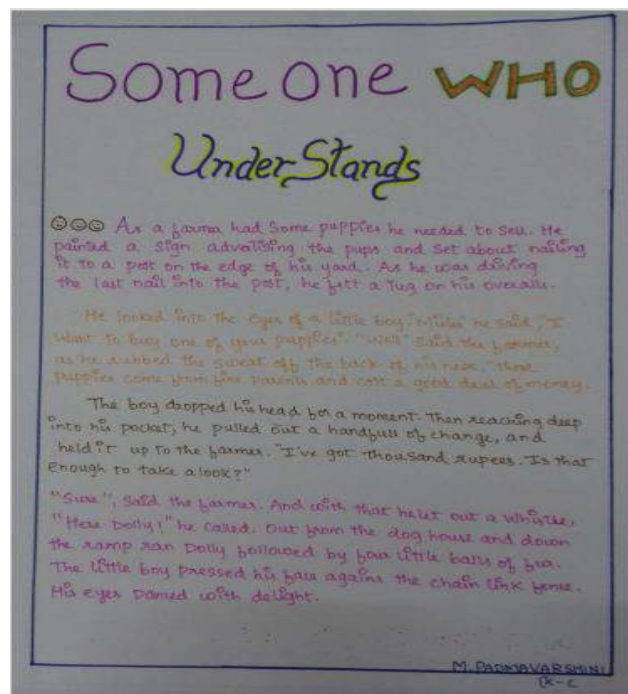 Someone WHO
UnderStands
As a farma had Some puppies he needed to sell. He
painted a sign advertising the pups and set about nailing
it to a post on the edge of his yard. As he was driving
the last nail into the post, he felt a tug on his overalls.
He looked into the eyes of a little boy, "Mister" he said, "I
want to buy one of your puppies". "Well" said the farmer,
as he rubbed the sweat off the back of his neck, "These
puppies come from fine parents and cost a good deal of money.
The boy dropped his head for a moment. Then reaching deep
into his pocket, he pulled out a handfull of change, and
held it up to the farmer. "I've got thousand rupees. Is that
enough to take a look?"
"Sure", Said the farmer. And with that he let out a whistle,
"Here Dolly!" he called. Out from the dog house and down
the ramp ran Dolly followed by four little balls of fur.
The little boy pressed his face agains the chain link fence.
His eyes Danced with delight.
M. PADMAVARSHINI
IX-C